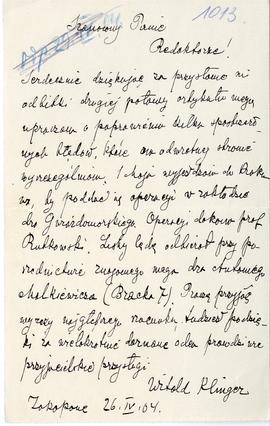 1013
Szanowny Panie
Redaktorze!
Serdecznie dziękując za przysłane mi
odbitki drugiej połowy artykułu mego
upraszam o poprawienie kilku spostrzeżo-
nych błędów, które na odwrotnej stronie
wyszczególniam. 1 maja wyjeżdżam do Krako-
wa, by poddać się operacji w zakładzie
dra Gwiazdomorskiego. Operacji dokona prof.
Rutkowski. Listy będę odbierał przy po-
średnictwie znajomego mego dra Antoniego
Małkiewicza (Bracka 7). Proszę przyjąć
wyrazy najgłębszego szacunku tudzież podzię-
ki za wielokrotnie doznane odeń prawdziwie
przyjacielskie przysługi
Witold Klinger
Zakopane 26.IV.04.